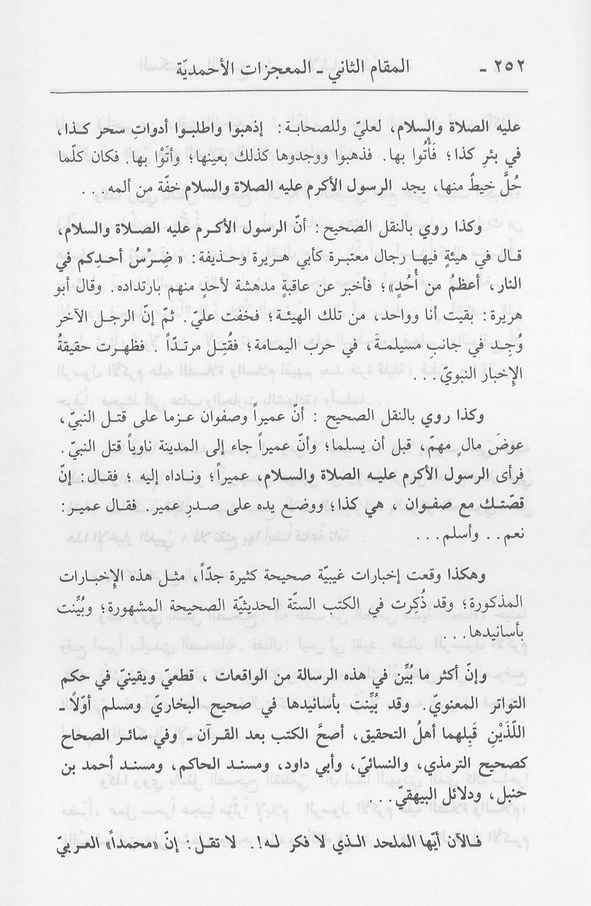 ٢٥٢ - المقام الثاني - المعجزات الأحمديّة
عليه الصلاة والسلام، لعليّ وللصحابة: إذهبوا واطلبوا أدواتِ سحر كذا،
في بئرِ كذا؛ فَأْتُوا بها. فذهبوا ووجدوها كذلك بعينها؛ وأتَوْا بها. فكان كلّما
حُلَّ خيطٌ منها، يجد الرسول الأكرم عليه الصلاة والسلام خفّة من ألمه...
وكذا روي بالنقل الصحيح: أنّ الرسول الأكرم عليه الصلاة والسلام،
قال في هيئةٍ فيها رجال معتبرة كأبي هريرة وحذيفة: «ضِرْسُ أحدِكم في
النار، أعظمُ من أُحُدٍ»؛ فأخبر عن عاقبةٍ مدهشة لأحدٍ منهم بارتداده. وقال أبو
هريرة: بقيت أنا وواحد، من تلك الهيئة؛ فخفت عليّ. ثمّ إنّ الرجل الآخر
وُجِد في جانبِ مسيلمةَ، في حرب اليمامة؛ فقُتِل مرتدّاً. فظهرت حقيقةُ
الإخبار النبويّ...
وكذا روي بالنقل الصحيح: أنّ عميراً وصفوان عزما على قتل النبي،
عوضَ مالٍ مهمّ، قبل أن يسلما؛ وأنّ عميراً جاء إلى المدينة ناوياً قتل النبيّ.
فرأى الرسول الأكرم عليه الصلاة والسلام، عميراً؛ وناداه إليه؛ فقال: إنّ
قصّتك مع صفوان، هي كذا؛ ووضع يده على صدرِ عمير. فقال عمير:
نعم.. وأسلم...
وهكذا وقعت إخبارات غيبية صحيحة كثيرة جدّاً، مثل هذه الإخبارات
المذكورة؛ وقد ذُكِرت في الكتب الستّة الحديثيّة الصحيحة المشهورة؛ وبُيِّنت
بأسانيدها...
وإنّ أكثر ما بُيِّن في هذه الرسالة من الواقعات، قطعيّ ويقينيّ في حكم
التواتر المعنويّ. وقد بُيِّنت بأسانيدها في صحيح البخاريّ ومسلم أوّلاً -
اللّذَيْنِ قَبِلهما أهلُ التحقيق، أصحَّ الكتب بعد القرآن - وفي سائر الصحاح
كصحيح الترمذي، والنسائيّ، وأبي داود، ومسند الحاكم، ومسند أحمد بن
حنبل، ودلائل البيهقيّ...
فالآن أيّها الملحد الذي لا فكر له!. لا تقل: إنّ «محمداً» العربيّ